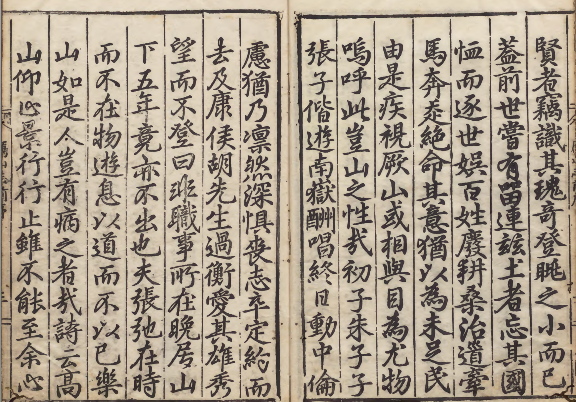 賢者竊識其瑰奇登眺之小而已
蓋前世嘗有留連玆土者忘其國
恤而逐世娛百姓廢耕桑治道牽
馬奔走絕命其意猶以為未足民
由是疾視厥山或相與目為尤物
嗚呼此豈山之性哉初子朱子子
張子偕遊南嶽酬唱終日動中倫
慮猶乃凜然深懼喪志卒定約而
去及康侯胡先生過衡愛其雄秀
望而不登曰非職事所在晚居山
下五年竟亦不出也夫張弛在時
而不在物遊息以道而不以已樂
山如是人豈有病之者哉詩云高
山仰止景行行止雖不能至余心